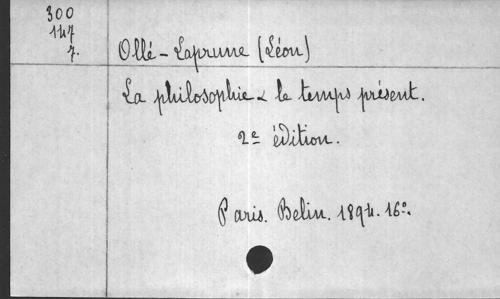 300
147
7.
Ollé-Laprune (Léon)
La philosophie & le temps présent.
2e édition.
Paris. Belin. 1894. 16o.